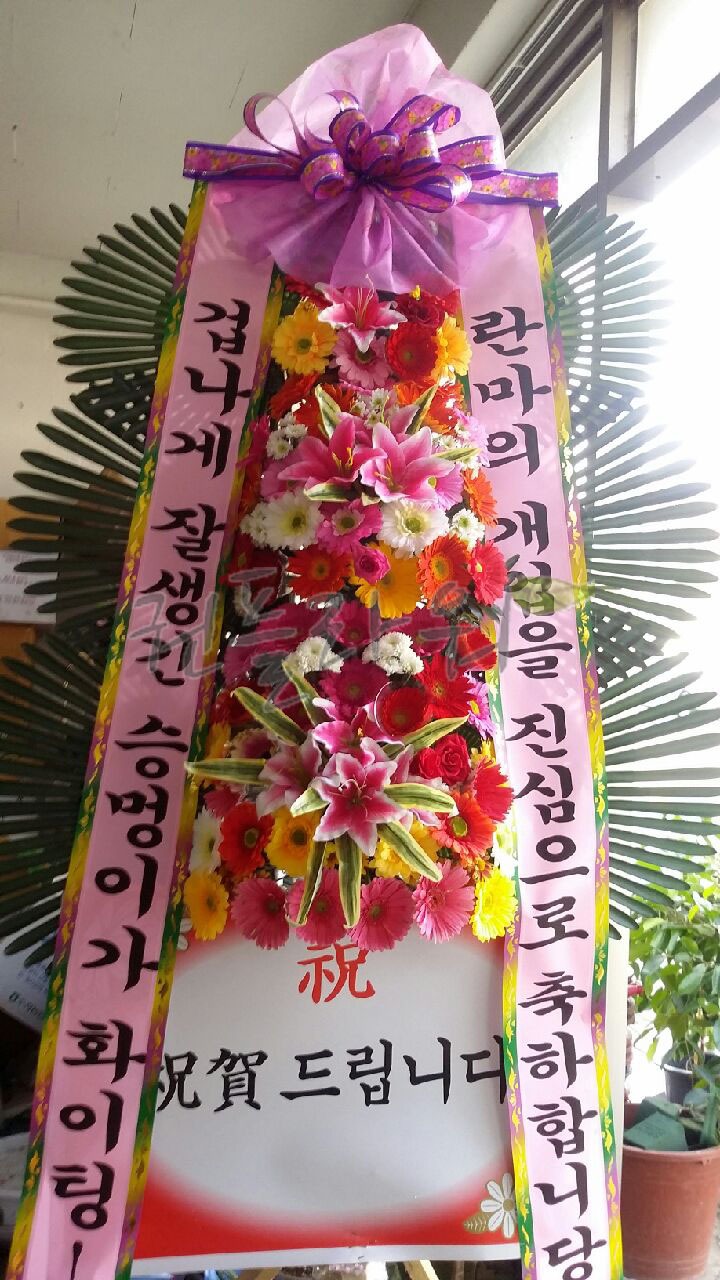 겁나게 잘생긴 승멍이가 화이팅!
란마의 개업을 진심으로 축하합니당
祝
祝賀 드립니다